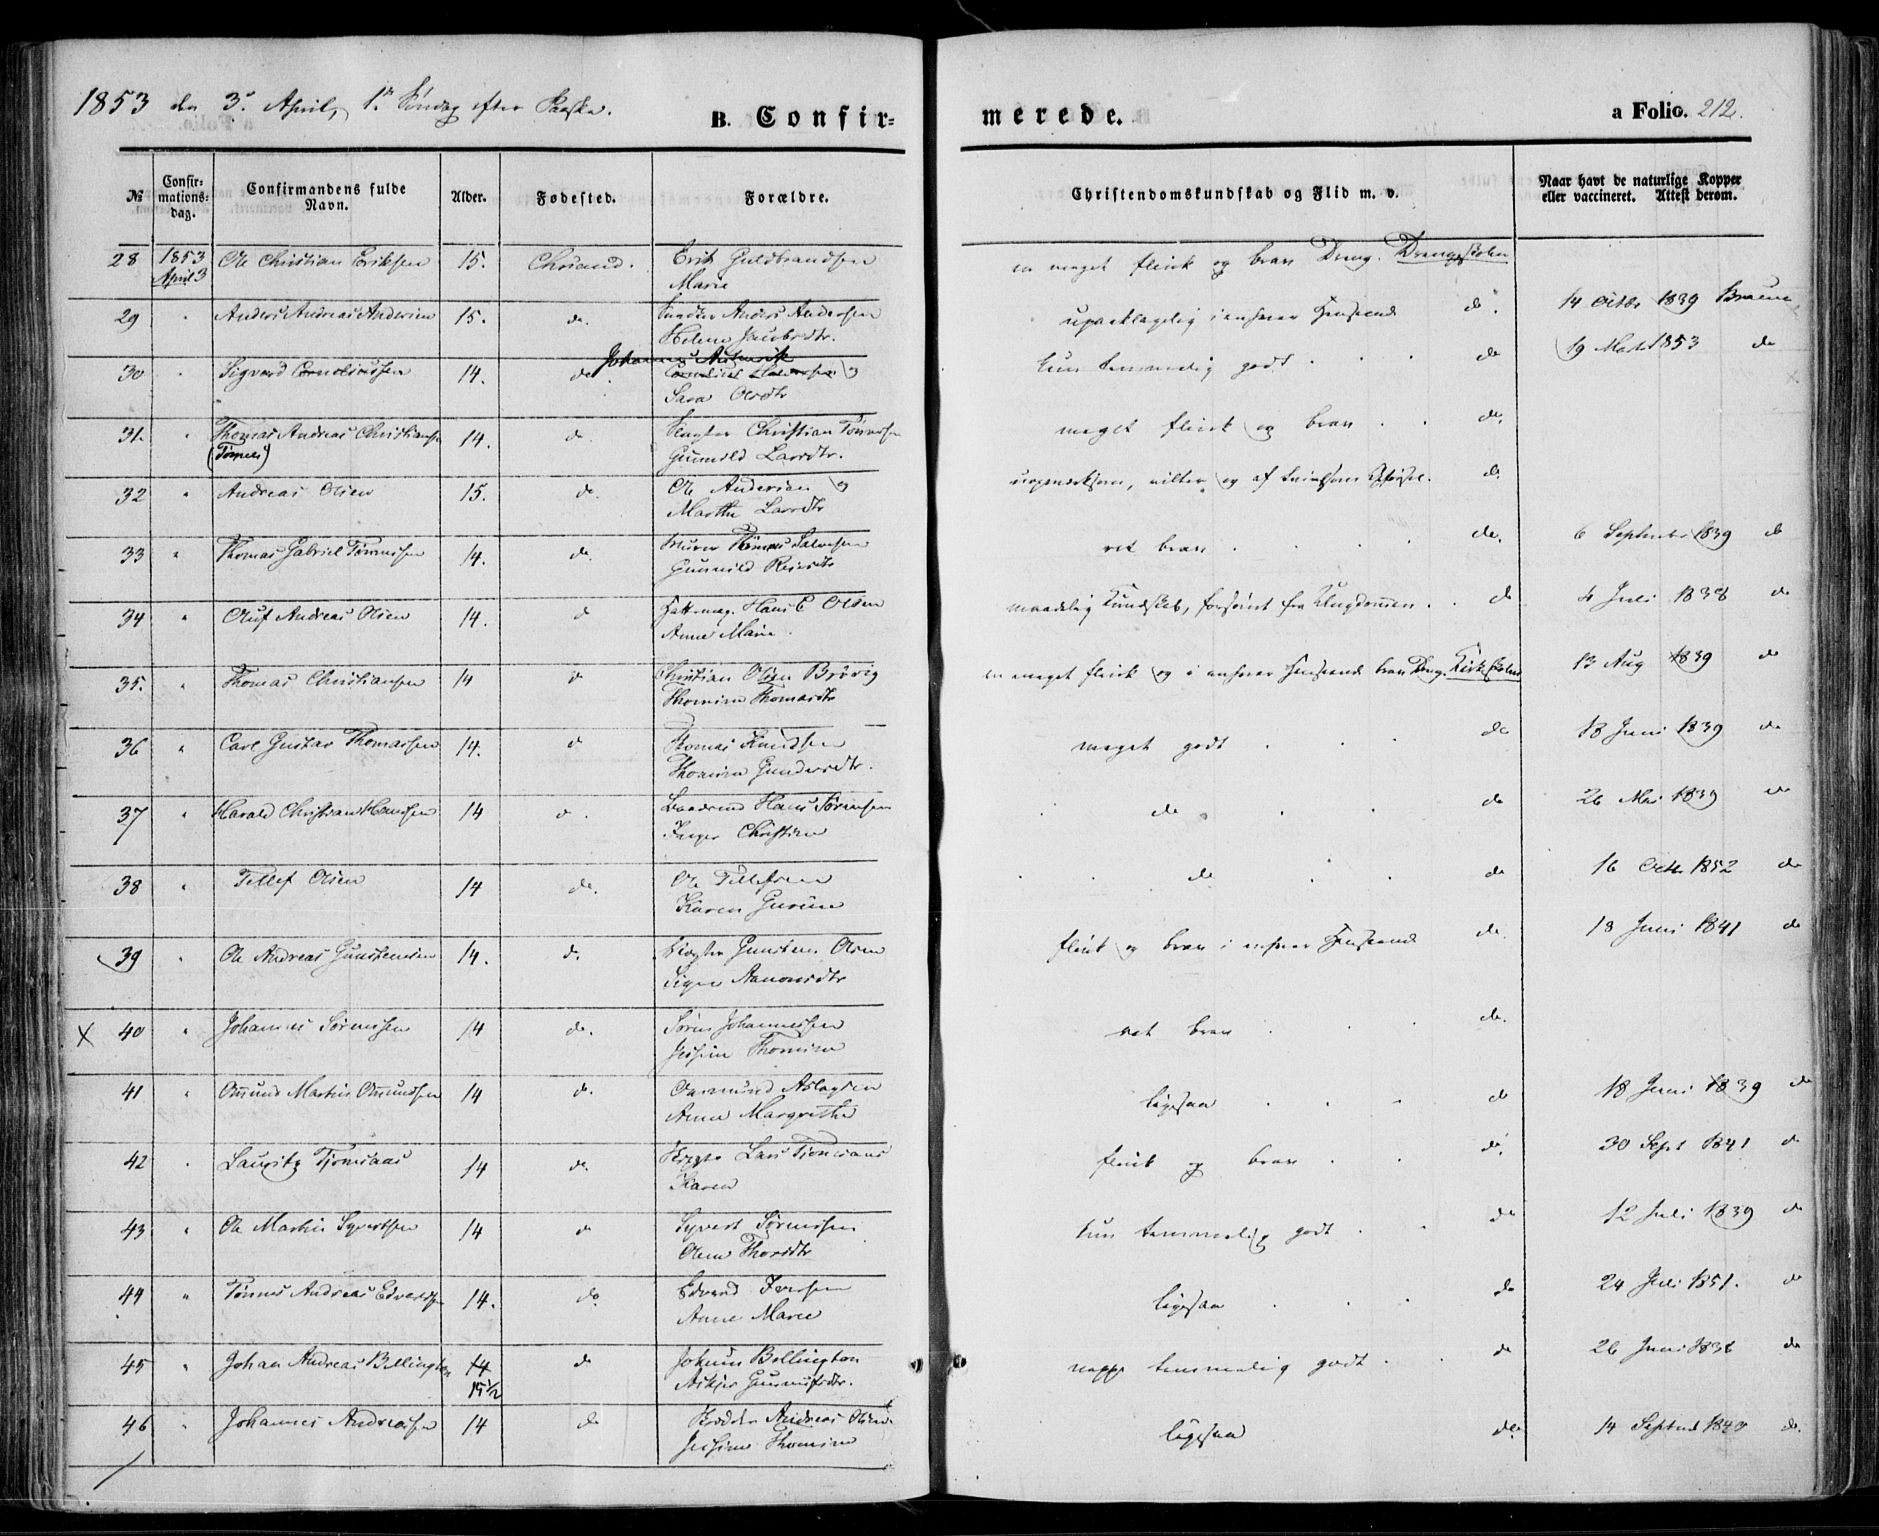 1853 den 3. April, 1ste Søndag efter Paaske.
B. Confirmerede.
a Folio. 212.
№ Confirmationsdag. Confirmandens fulde Navn. Alder. Fødested. Forældre. Christendomskundskab og Flid m. v. Naar havt de naturlige Kopper eller vaccineret. Attest derom.
28 1853 April 3 Ole Christian Eriksen 15. Chrsand. Erik Guldbrandsen
Marie
en meget flink og brav Dreng. Drengeskolen
29 " Anders Andreas Andersen 15. do. Anders Andersen
Helene Jacobsdtr.
upaaklagelig i enhver Henseende do. 14 Octbr 1839
30 " Sigvard Corneliussen 14. do Cornelius Halvorsen og
Sara Olsdtr
kun temmelig godt do 19 Marts 1853 do
31. " Thomas Andreas Christiansen 14. do. Christian Tønnesen
(Tønnes)
Gunnild Larsdtr.
meget flink og brav do.
32 " Andreas Olsen 15. do. Ole Andersen og
Marthe Larsdtr
do.
33 " Thomas Gabriel Tønnesen 14. do. Murer Tønnes Salvesen
Gunnild Reiersdtr
ret brav do. 6 September 1839 do
34 " Oluf Andreas Olsen 14. do Hans C Olsen
Anne Marie
maadelig Kundskab, forsømt fra Ungdommen do 4 Juli 1838 do
35. " Thomas Christiansen 14 do Christian Olsen Brøvig
Thomine Thomasdtr
en meget flink og i enhver Henseende brav Dreng. Kirkeskolen 13 Aug 1839 do
36 " Carl Gustav Thomassen 14. do Thomas Knudsen
Thomine Gundersdtr.
meget godt do 18 Juni 1839 do
37 " Harald Christian Hansen 14 do. Hans Sørensen
Inger Christine
do do 26 Mai 1839 do
38 " Tellef Olsen 14 do. Ole Tellefsen
Karen Gurine
do do 16 Octbr 1852 do
39 " Ole Andreas Gunstensen 14. do. Gunsten Olsen
Signe Aanonsdtr
flink og brav i enhver Henseende do. 18 Juni 1841 do
X 40 " Johannes Sørensen 14 do. Søren Johannessen
Jessine Thomine
ret brav do.
41 " Omund Martin Omundsen 14 do. Oarmund Aslagsen
Anne Margrethe
ligesaa do 18 Juni 1839 do
42 " Lauritz Tjomsaas 14 do. Lars Tjomsaas
Karen
flink og brav do. 30 Sept 1841 do
43 " Ole Martin Syvertsen 14 do Syvert Sørensen
Olene Thorsdtr
kun temmelig godt do 12 Juli 1839 do
44 " Tønnes Andreas Edvardsen 14. do Edvard Iversen
Anne Marie
ligesaa do 24 Juli 1851. do
45 " Johan Andreas Bellington 14 do Johan Bellington
15½
Askjer Gunnulfsdtr.
neppe temmelig godt do 26 Juni 1838 do
46 " Johannes Andreassen 14 do Andreas Olsen
Jessine Thomine
ligesaa do. 14 Septemb 1840 do.